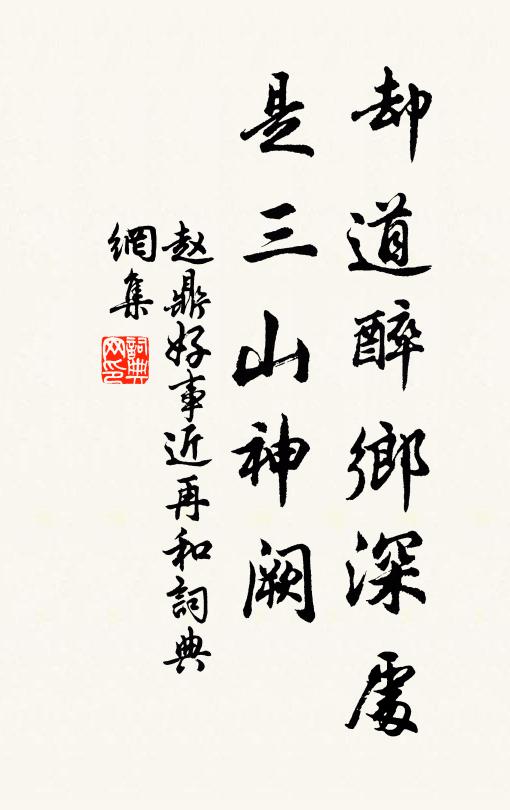 却道醉鄉深處
是三山神阙
赵鼎好事近再和詞典
網集
詞典
网印